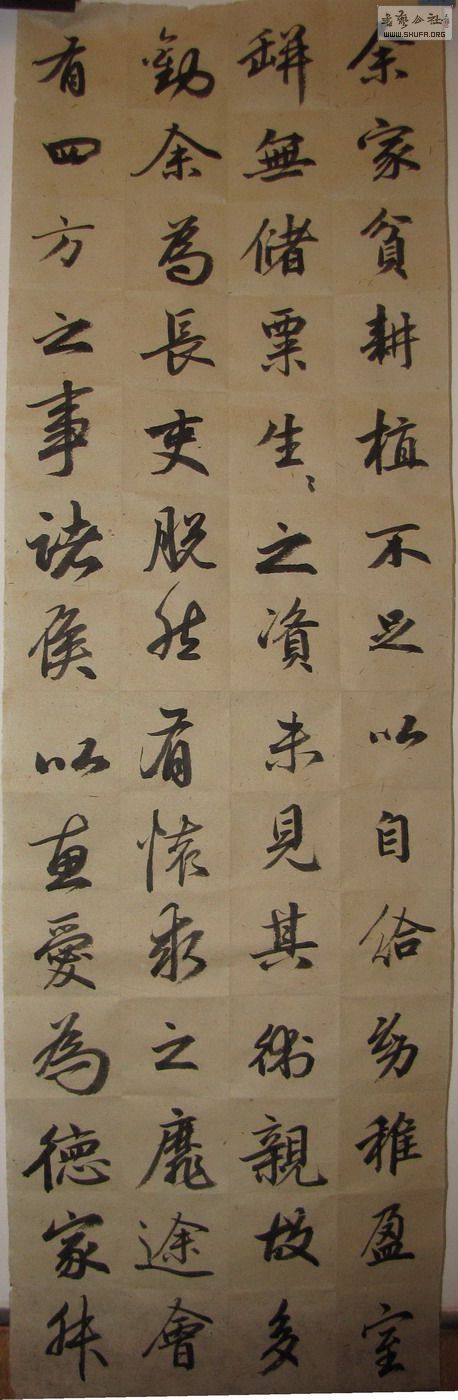 余家貧耕植不足以自給幼稚盈室
缾無儲粟生〻之資未見其術親故多
勸余為長吏脫然有懷求之靡途會
有四方之事諸侯以惠愛為德家叔
書藝公社
WWW.SHUFA.ORG